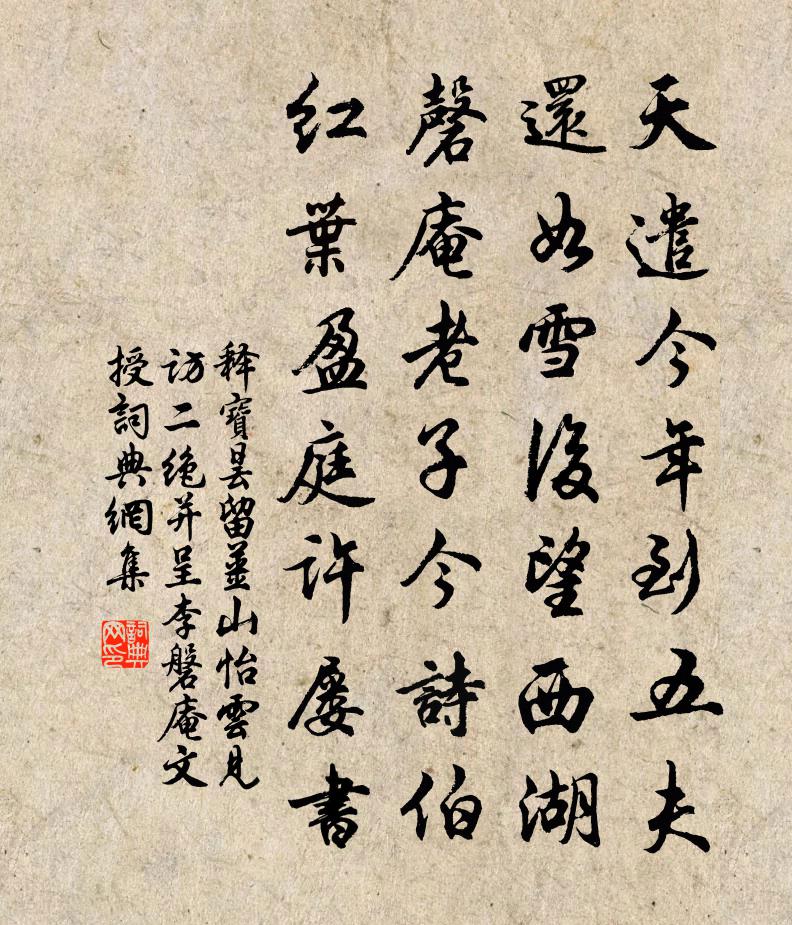 天遣今年到五夫
還如雪後望西湖
磬庵老子今詩伯
紅葉盈庭許屢書
釋寶曇留薑山怡雲見
訪二絕并呈李磐庵文
授詞典網集
詞典網印